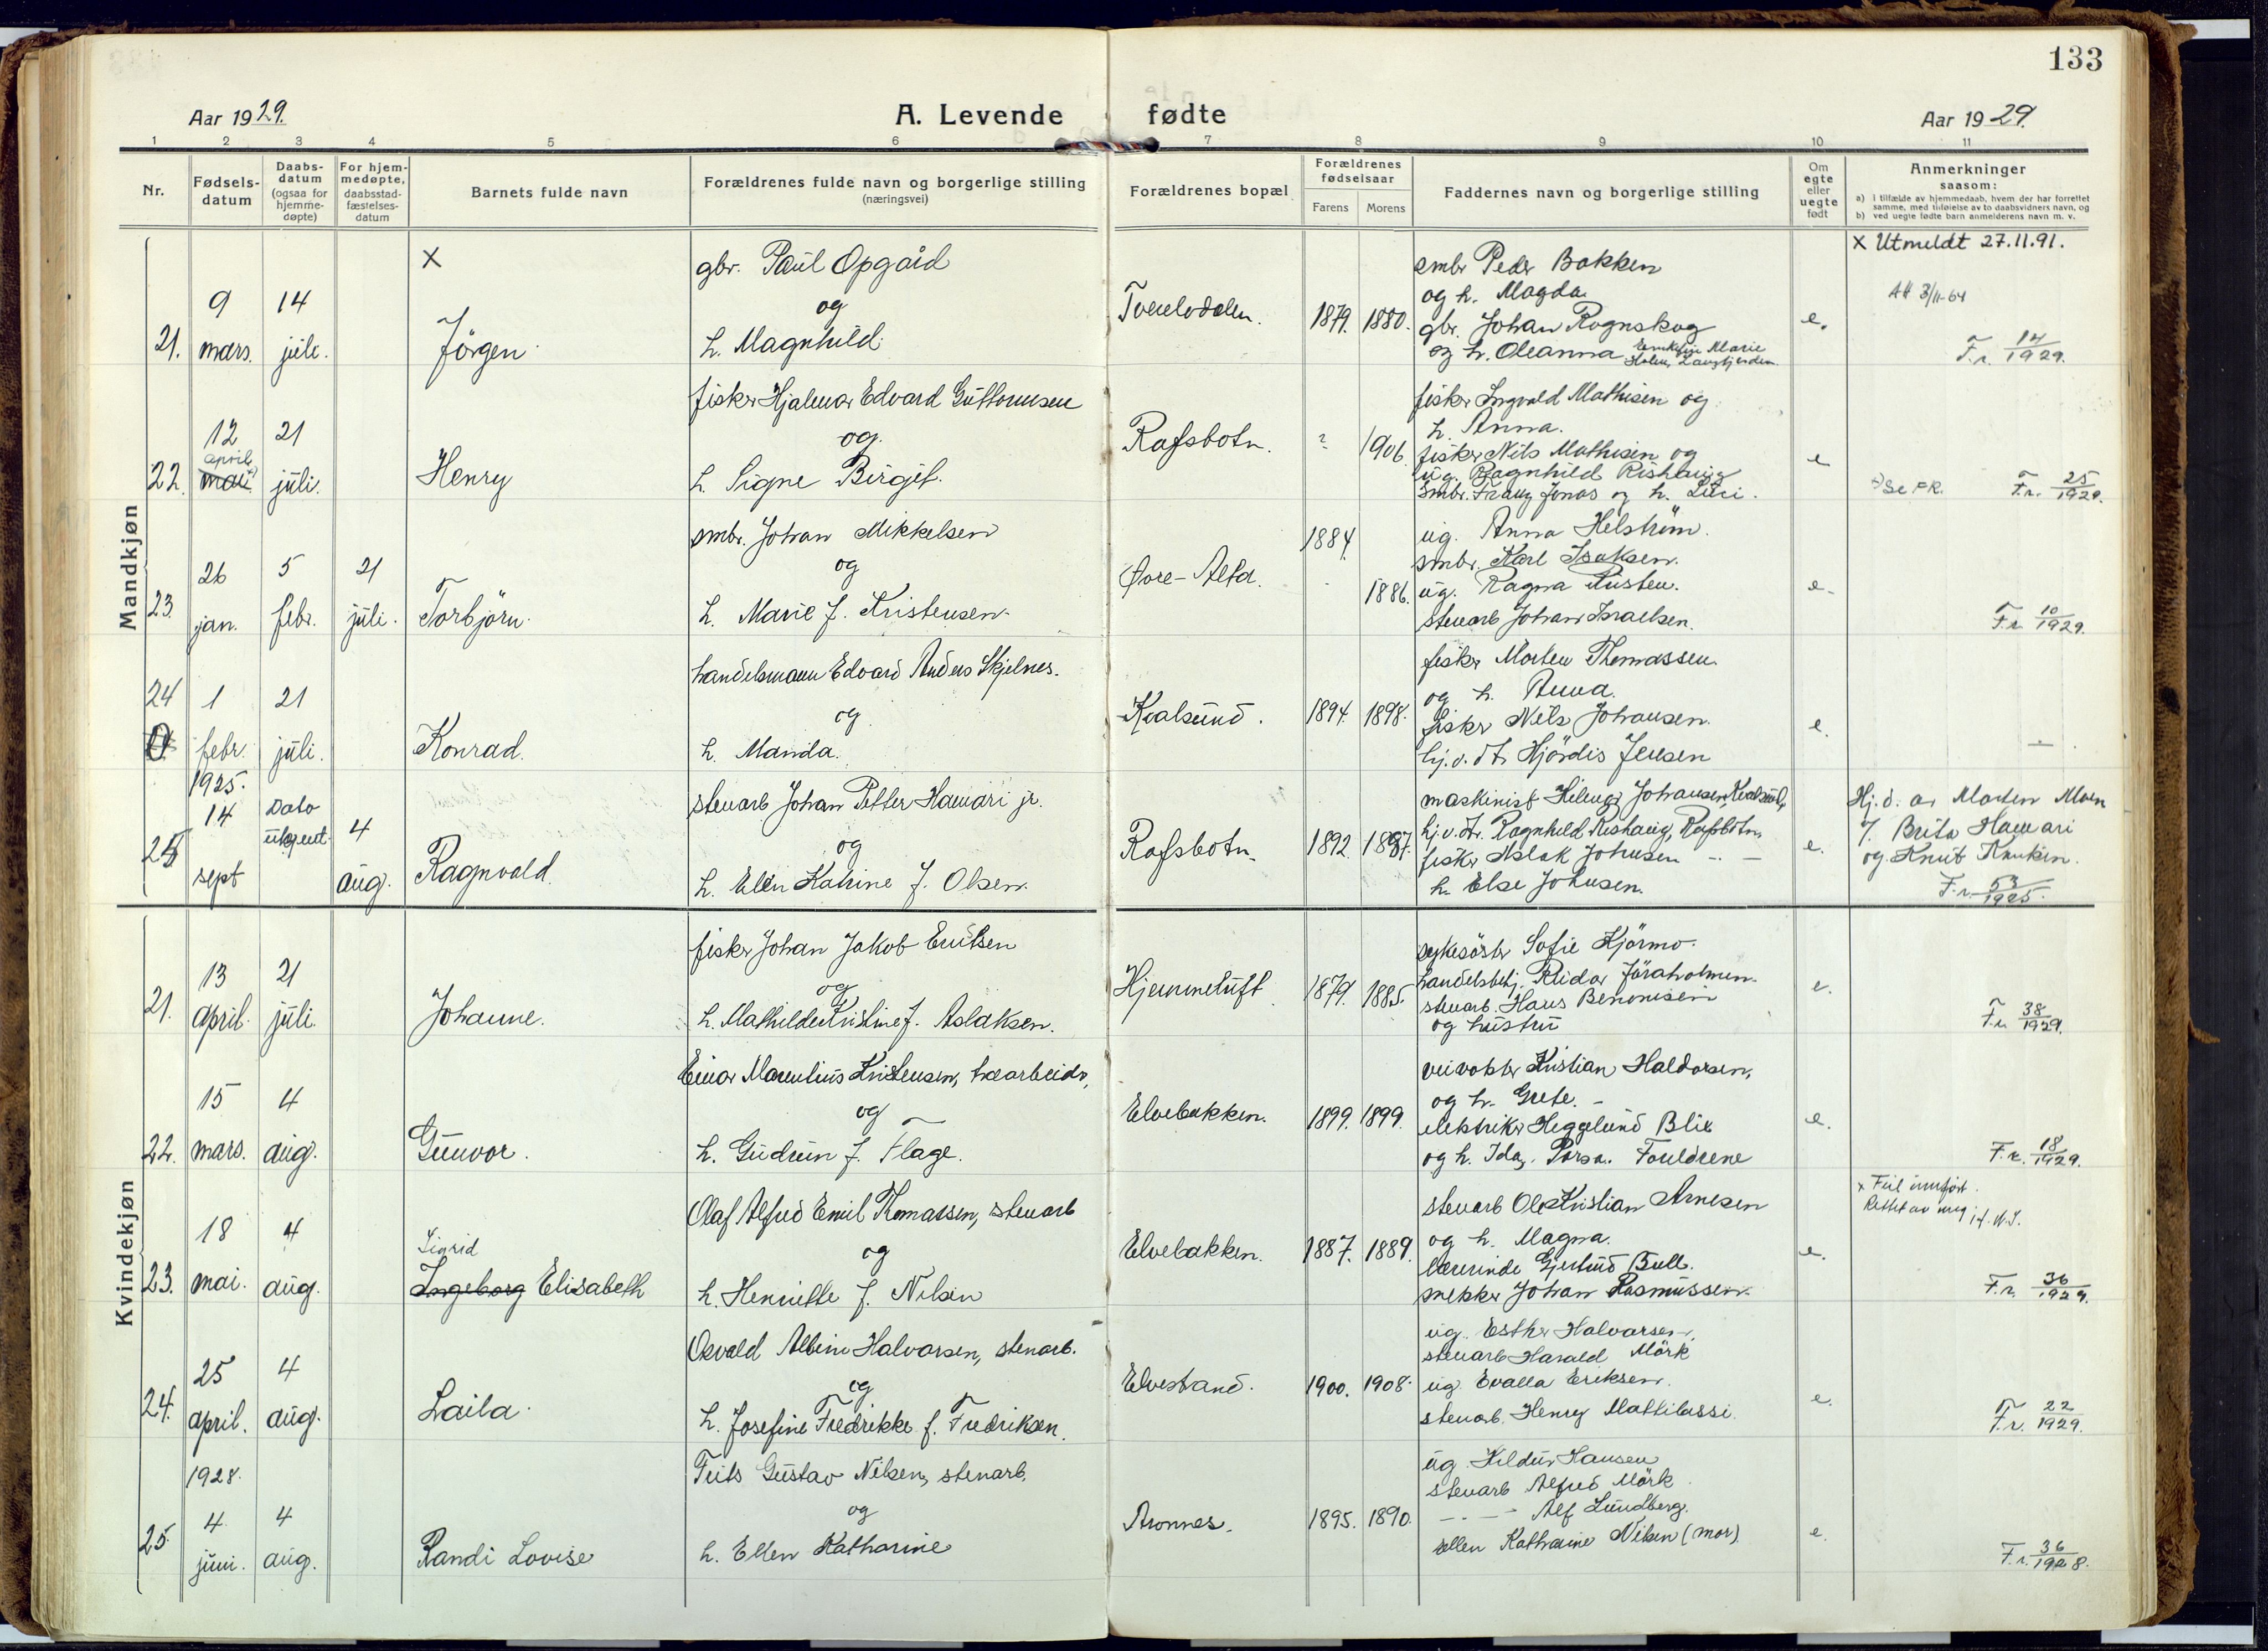 133
Aar 1929.
A. Levende fødte
Aar 1929.
1 2 3 4 5 6 7 8 9 10 11
Nr.
Fødsels-
datum
Daabs-
datum
(ogsaa for
hjemme-
døpte)
For hjem-
medøpte,
daabsstad-
fæstelses-
datum
Barnets fulde navn
Forældrenes fulde navn og borgerlige stilling
(næringsvei)
Forældrenes bopæl
Forældrenes
fødselsaar
Farens Morens
Faddernes navn og borgerlige stilling
Om
egte
eller
uegte
født
Anmerkninger
saasom:
a) i tilfælde av hjemmedaab, hvem der har forrettet
samme, med tilføielse av to daabsvidners navn, og
b) ved uegte fødte barn anmelderens navn m. v.
Mandkjøn
21.
9
mars.
14
juli.
x
Jörgen
gbr. Paul Opgård
og
h. Magnhild.
Tverelvdalen.
1879. 1880.
smbr Peder Bakken
og h. Magda.
gbr. Johan Rognskog
og h. Oleanna
e.
x Utmeldt 27.11.91.
Att 3/11-64
F.r. 14/1929.
22.
12
april
mai x)
21
juli.
Henry
fisker Hjalmar Edvard Guttormsen
og
h. Signe Birgit.
Rafsbotn.
? 1906.
fisker Ingvald Mathisen og
h. Anna.
fisker Nils Mathisen og
ug. Ragnhild Rishaug
smbr. Franz Jonas og h.
e
x) Se FR.
F.r. 25/1929.
23.
26
jan.
5
febr.
21
juli.
Torbjörn.
smbr. Johan Mikkelsen
og
h. Marie f. Kristensen.
Övre-Alta.
1884.
1886.
ug. Anna Helström.
smbr. Karl Isaksen.
ug. Ragna Risten.
stenarb Johan Israelsen.
e.
F.r. 10/1929.
24
1
febr.
21
juli.
Konrad.
handelsmann Edvard Anders Skjelnes.
og
h. Manda.
Kvalsund.
1894. 1898.
fisker Morten Thomassen.
og h. Anna.
fisker Nils Johansen.
hj.v.dt. Hjördis Jensen
e.
—
25
1925.
14
sept
Dato
ukjent.
4
aug.
Ragnvald.
stenarb Johan Petter Hamari jr.
og
h. Elen Katrine f. Olsen.
Rafsbotn.
1892. 1887.
maskinist Helmer Johansen, Kvalsund,
hj.v.dt. Ragnhild Rishaug, Rafsbotn,
fisker Aslak Johnsen - . —
h. Else Johnsen.
e.
Hj.d. av Morten Moen
f. Brita Hamari
og Knut Knuksen.
F.r. 53/1925.
Kvindekjøn
21.
13
april.
21
juli.
Johanne.
fisker Johan Jakob Eriksen
og
h. Mathilde Kristine f. Aslaksen.
Hjemmeluft
1879. 1885.
sykesöster Sofie Kjörmo.
handelsbetj. Reidar Jöraholmen.
stenarb. Hans Benonisen
og hustru
e.
F.r. 38/1929.
22.
15
mars.
4
aug.
Gunvor.
Einar Marentius Kristensen, træarbeider,
og
h. Gudrun f. Flage.
Elvebakken.
1899. 1899.
veivokter Kristian Haldorsen,
og h. Grete. -
elektriker Heggelund Blix
og h. Ida, Porsa. Foreldrene
e.
F.r. 18/1929.
23.
18
mai.
4
aug.
Sigrid
Ingeborg Elisabeth
Olaf Alfred Emil Thomassen, stenarb
og
h. Henriette f. Nilsen
Elvebakken.
1887. 1889.
stenarb Ole Kristian Arnesen
og h. Magna.
lærerinde Gjertrud Bull.
snekker Johan Rasmussen.
e.
x Feil innfört.
Rettet av meg
F.r. 36/1929.
24.
25
april.
4
aug.
Laila.
Osvald Albin Halvorsen, stenarb.
og
h. Josefine Fredrikke f. Fredriksen.
Elvestrand.
1900. 1908.
ug. Esther Halvorsen,
stenarb Harald Mörk
ug. Evalla Eriksen.
stenarb. Henry Mattilassi.
e.
F.r. 22/1929.
25.
1928.
4
juni.
4
aug.
Randi Lovise
Teits Gustav Nilsen, stenarb.
og
h. Ellen Katharine
Aronnes.
1895. 1890.
ug. Hildur Hansen
stenarb Alfred Mörk
— . — Alf Lundberg.
Ellen Katharine Nilsen (mor).
e.
F.r. 36/1928.